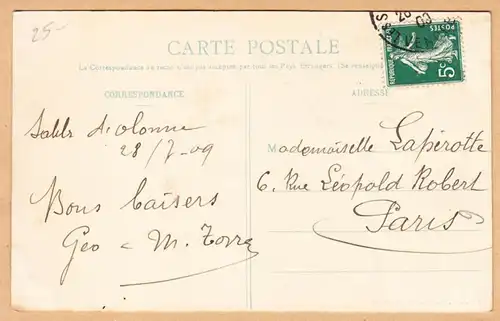 25-
CARTE POSTALE
La Correspondance au recto n'est pas acceptée par tous les Pays Etrangers. (Se renseigner
CORRESPONDANCE
ADRESSE
POSTES
REPUBLIQUE
5c
Sables d'olonne
28/7-09
Bons baisers
Geo - M. Torre
Mademoiselle Lapérotte
6. Rue Léopold Robert
Paris